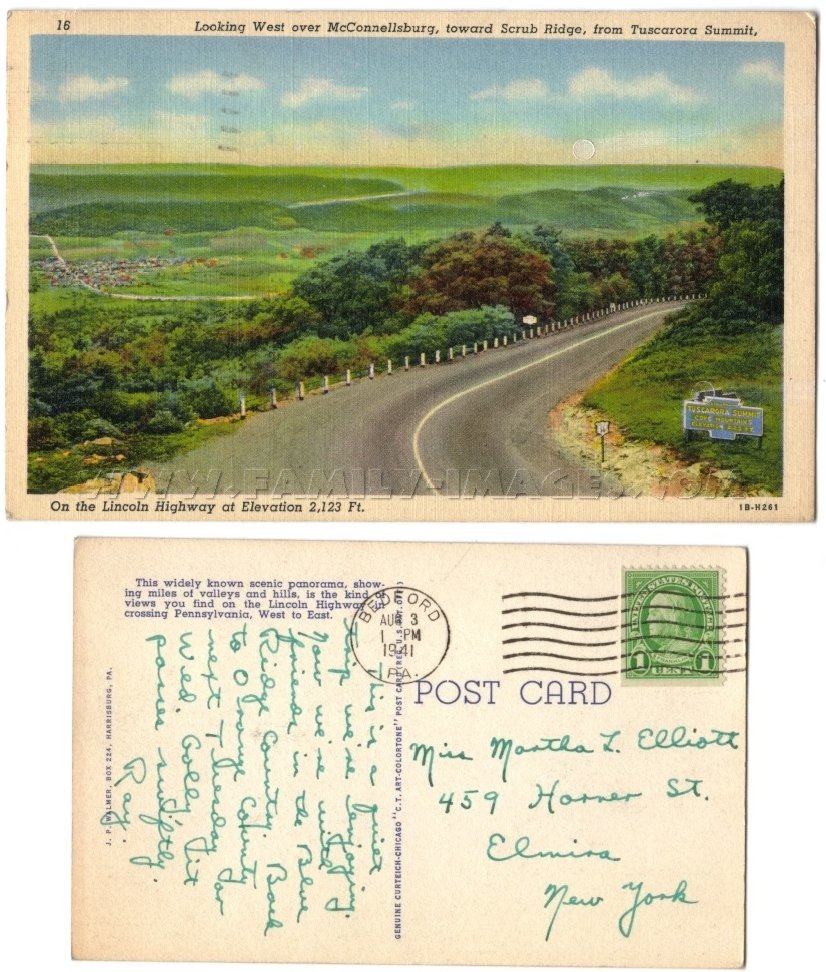 16
Looking West over McConnellsburg, toward Scrub Ridge, from Tuscarora Summit,
TUSCARORA SUMMIT
COVE MOUNTAINS
ELEVATION 2123 FT.
WWW.FAMILY-IMAGES.COM
On the Lincoln Highway at Elevation 2,123 Ft.
1B-H261
This widely known scenic panorama, show-
ing miles of valleys and hills, is the kind of
views you find on the Lincoln Highway in
crossing Pennsylvania, West to East.
BEDFORD
AUG 3
1 PM
1941
PA.
UNITED STATES POSTAGE
FRANKLIN
1 CENT 1
POST CARD
This is a quiet
trip we're enjoying.
Now we're with
friends in the Blue
Ridge Country. Back
to Orange County
next Tuesday or
Wed. Golly, it
passes swiftly.
Ray.
J. P. WALMER, BOX 224, HARRISBURG, PA.
GENUINE CURTEICH-CHICAGO "C.T. ART-COLORTONE" POST CARD (REG. U.S. PAT. OFF.)
Miss Martha L. Elliott
459 Horner St.
Elmira
New York